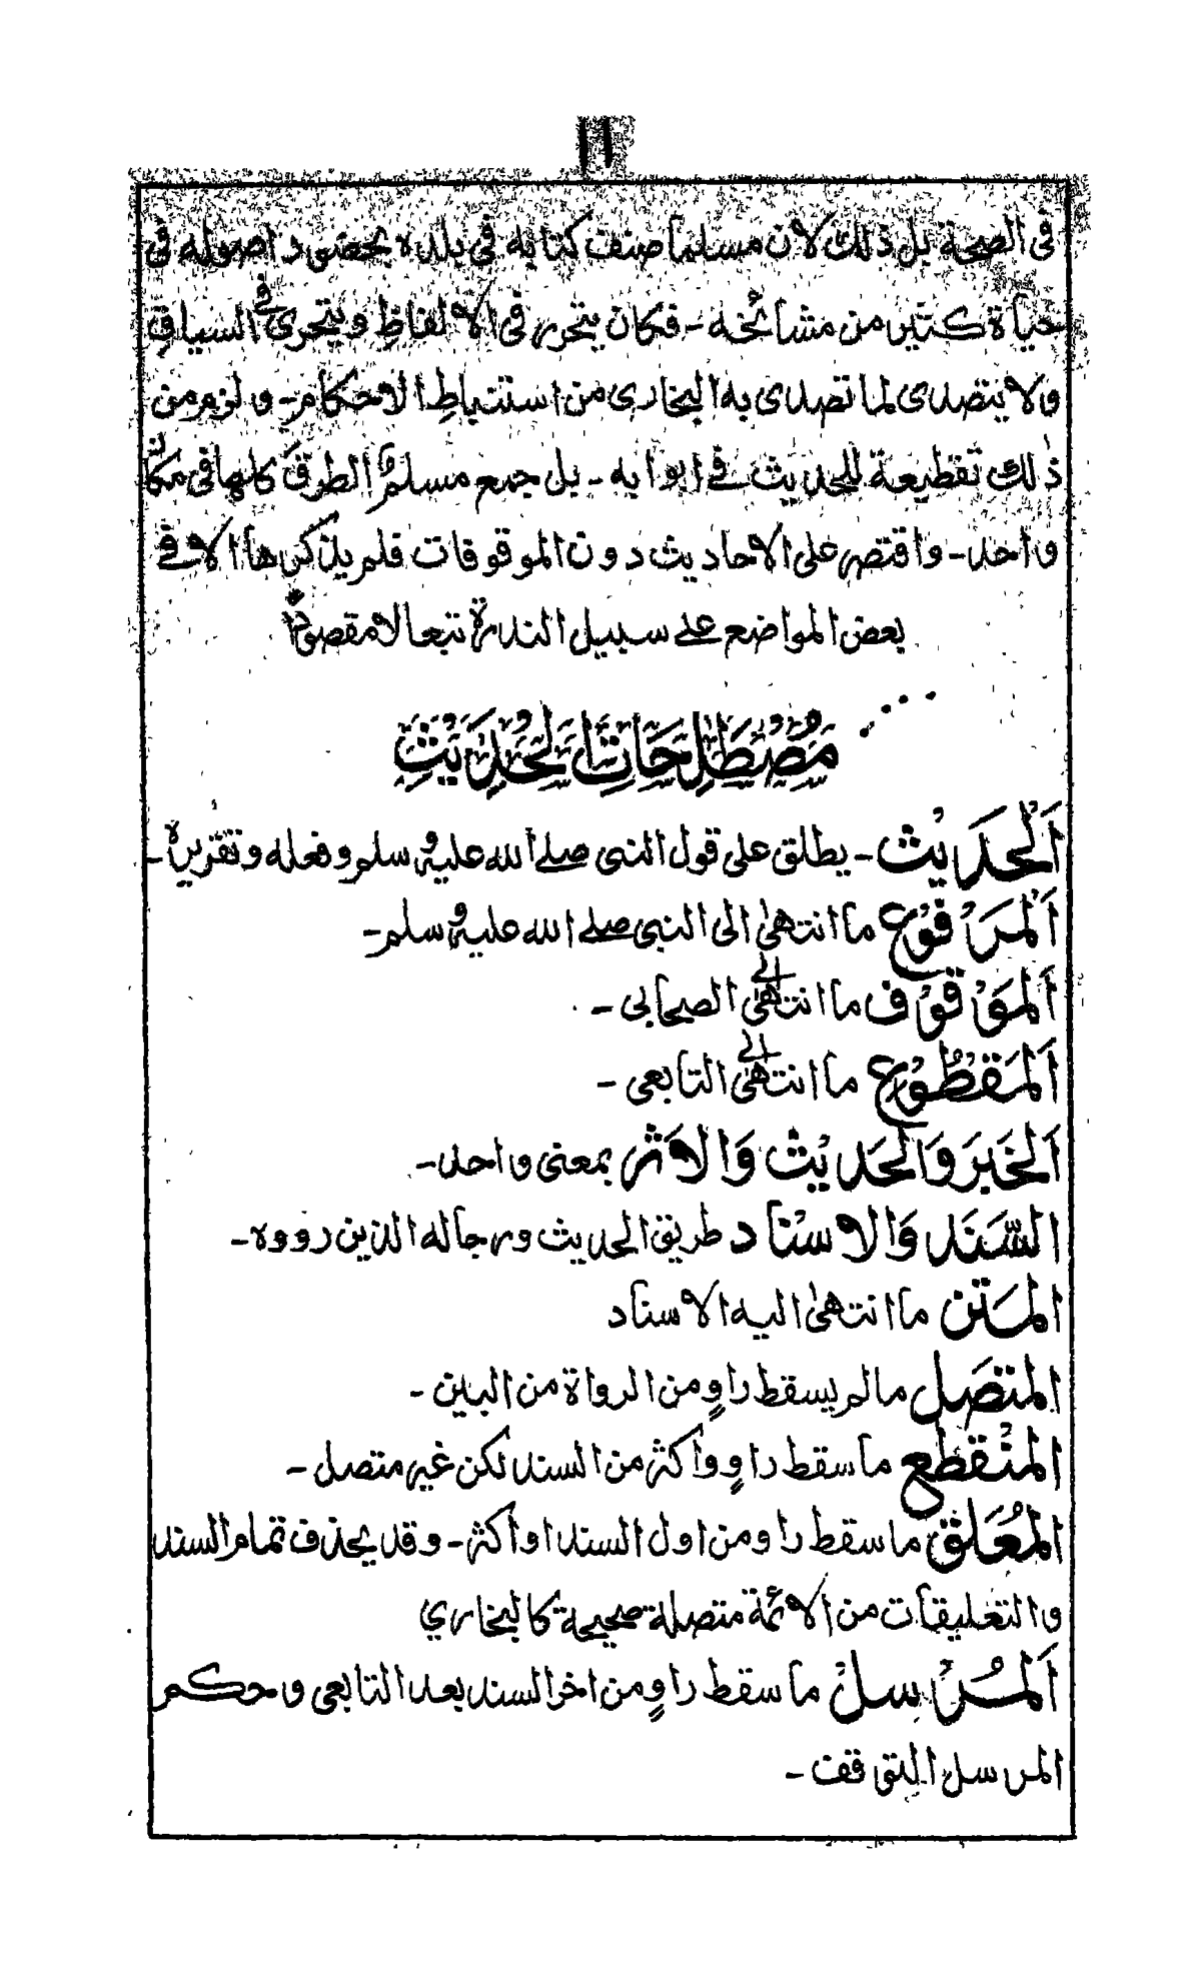 ١١
فى الصحة بل ذلك لان مسلما صنف كتابه فى بلده بحضور اصوله فى
حياة كثير من مشائخه - فكان يتحرر فى الالفاظ ويتحرى فى السياق
ولا يتصدى لما تصدى به البخارى من استنباط الاحكام - ولزم من
ذلك تقطيعة للحديث فى ابوابه - بل جمع مسلم الطرق كلها فى مكان
واحد - واقتصر على الاحاديث دون الموقوفات فلم يذكرها الا فى
بعض المواضع على سبيل الندرة تبعا لا مقصودا
مُصْطَلِحَاتُ الْحَدِيْثِ
اَلْحَدِيْث - يطلق على قول النبى صلے الله عليه و سلم وفعله وتقريره -
اَلْمَرْفُوْع ما انتهىٰ الى النبى صلے الله عليه و سلم -
اَلْمَوْقُوْف ما انتهىٰ الى الصحابى -
اَلْمَقْطُوْع ما انتهىٰ الى التابعى -
اَلْخَبَرَ وَالْحَدِيْث وَالاَثَر بمعنى واحد -
السَّنَد وَالاسْنَاد طريق الحديث ورجاله الذين رووه -
المَتَن ما انتهىٰ اليه الاسناد
المتصَل مالم يسقط راوٍ من الرواة من البين -
المنْقطع ما سقط راوٍ وأكثر من السند لكن غير متصل -
المُعَلق ما سقط راو من اول السند او أكثر - وقد يحذف تمام السند
والتعليقات من الائمة متصلة صحيحة كالبخاري
اَلْمُرْسلْ ما سقط راوٍ من اخر السند بعد التابعى وحكم
المرسل التوقف -